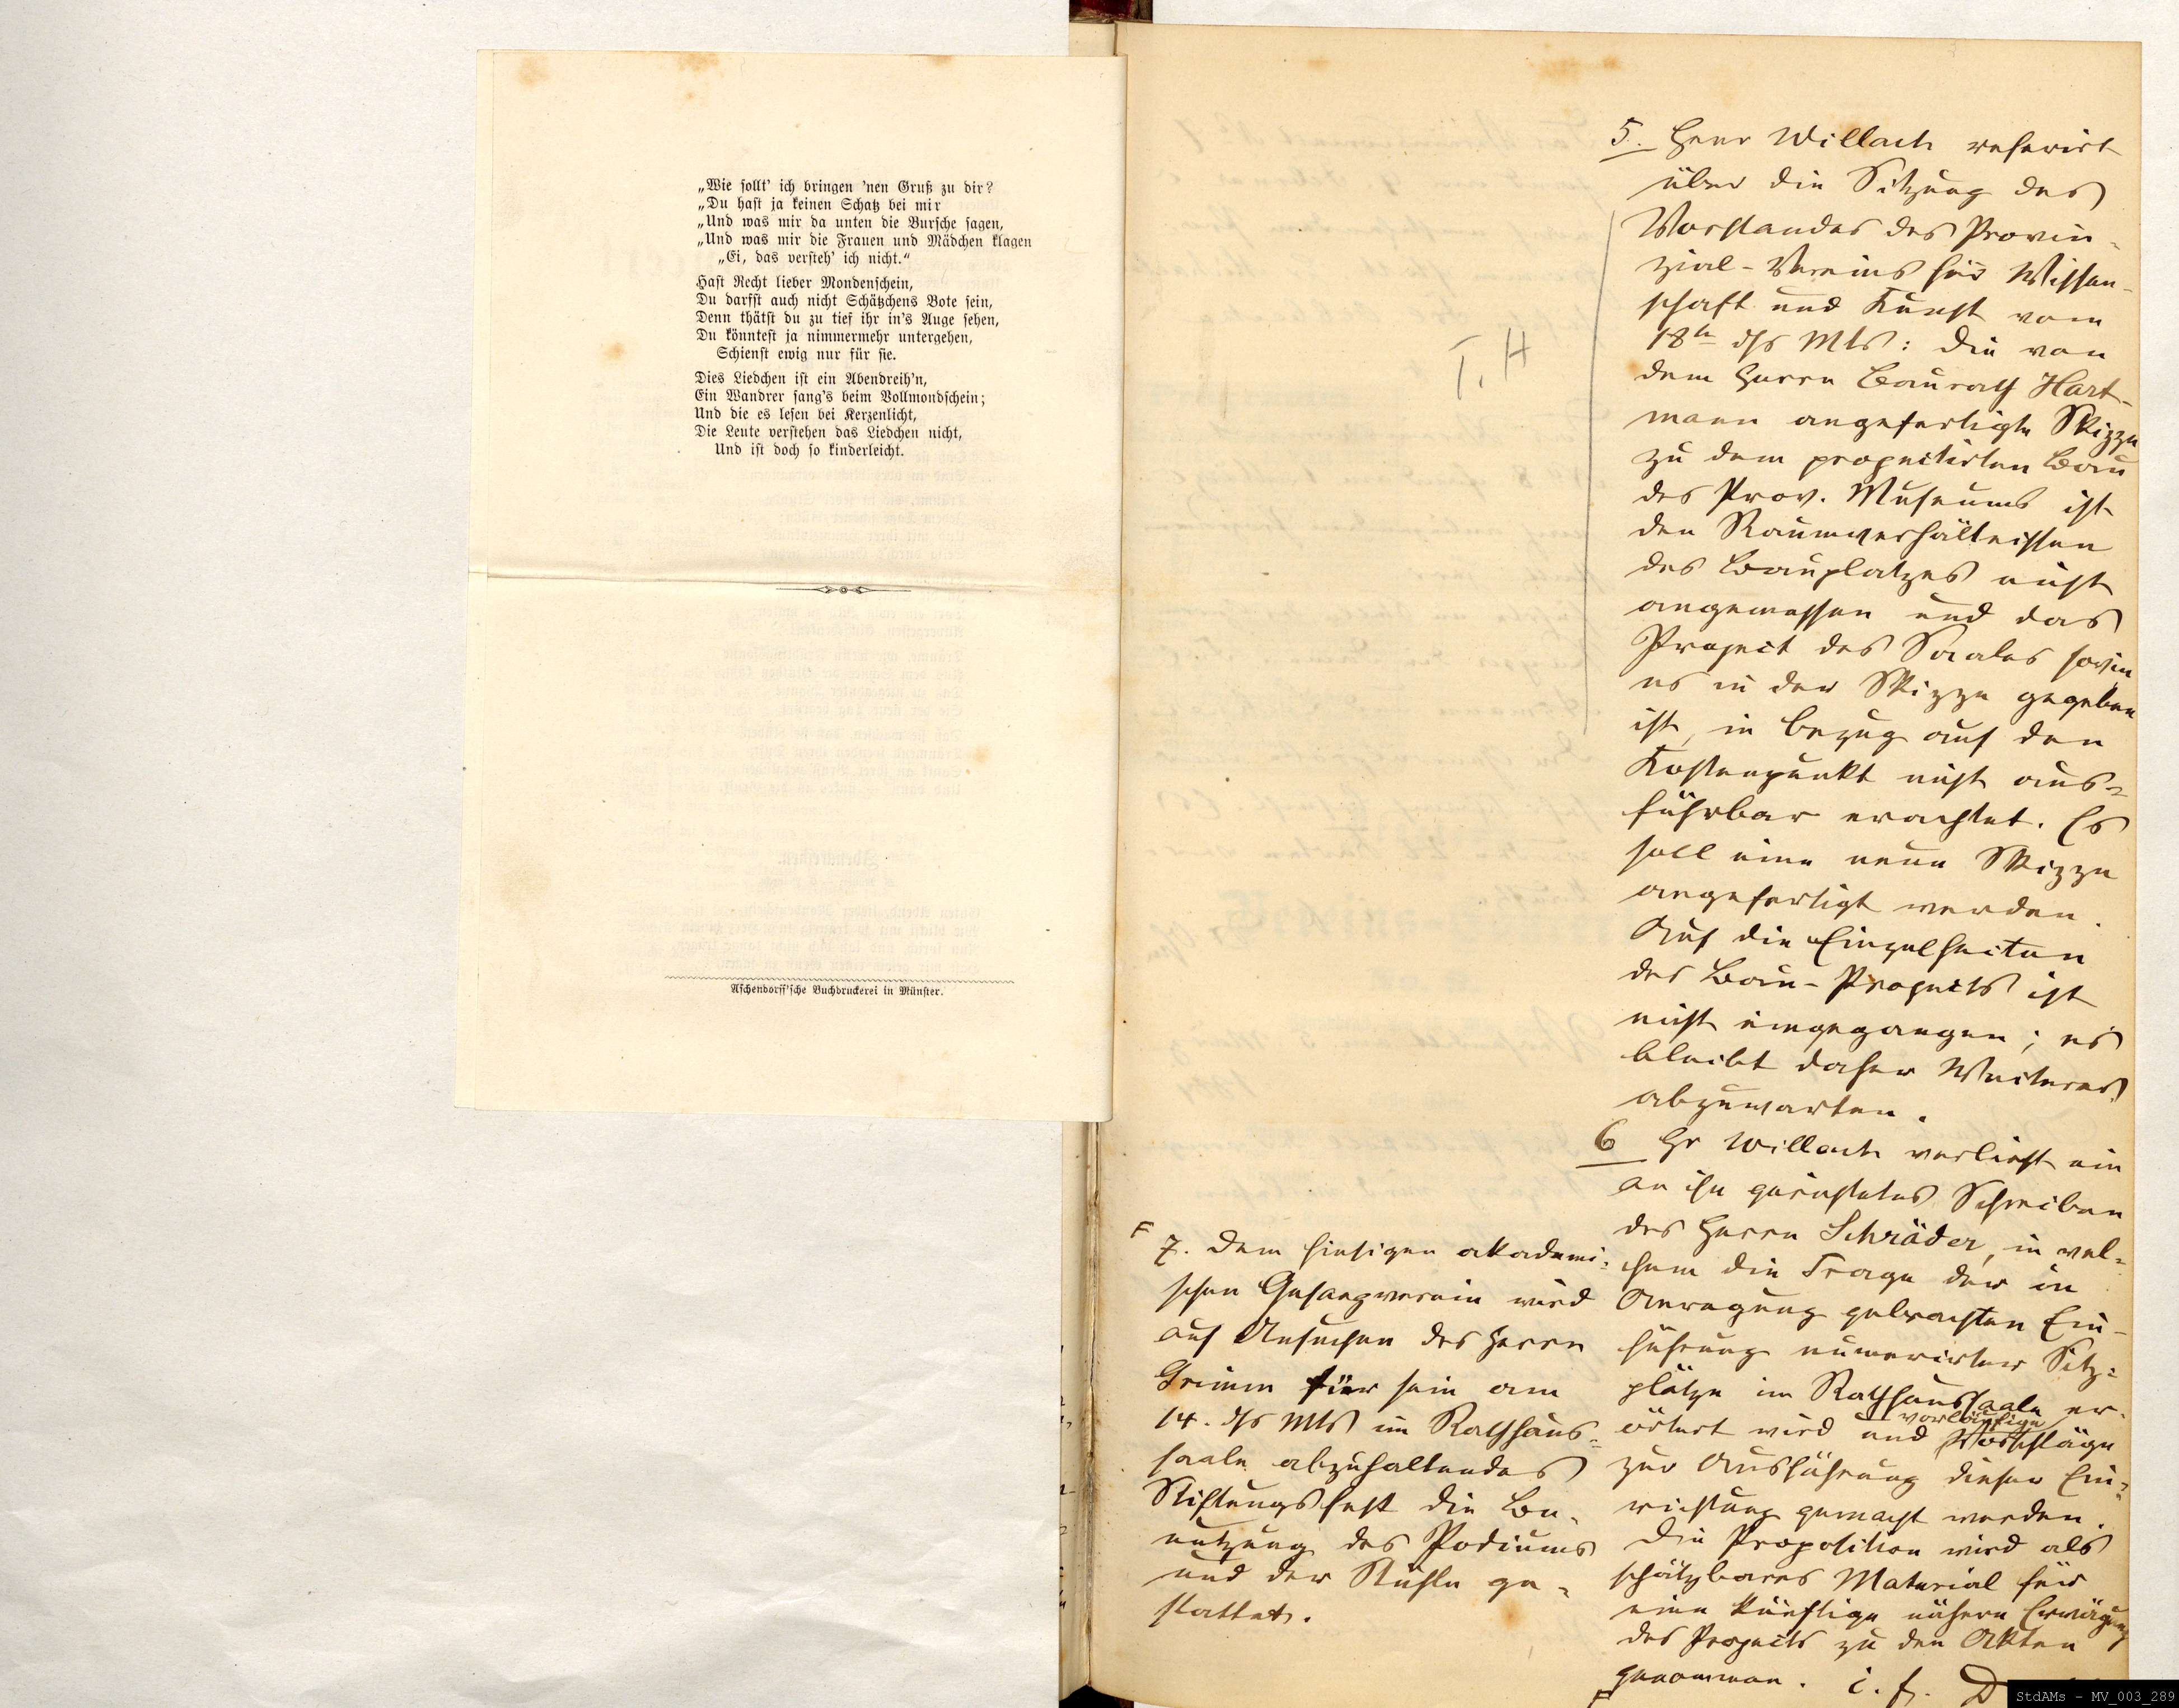 „Wie sollt' ich bringen 'nen Gruß zu dir?
„Du hast ja keinen Schatz bei mir
„Und was mir da unten die Bursche sagen,
„Und was mir die Frauen und Mädchen klagen
„Ei, das versteh' ich nicht.“
Hast Recht lieber Mondenschein,
Du darfst auch nicht Schätzchens Bote sein,
Denn thätst du zu tief ihr in's Auge sehen,
Du könntest ja nimmermehr untergehen,
Schienst ewig nur für sie.
Dies Liedchen ist ein Abendreih'n,
Ein Wandrer sang's beim Vollmondschein;
Und die es lesen bei Kerzenlicht,
Die Leute verstehen das Liedchen nicht,
Und ist doch so kinderleicht.
Aschendorff'sche Buchdruckerei in Münster.
T. H
5. Herr Willach referirt
über die Sitzung des
Vorstandes des Provin-
zial-Vereins für Wissen-
schaft und Kunst vom
18tn dss Mts: die von
dem Herrn Baurath Hart-
mann angefertigte Skizze
zu dem projectirten Bau
des Prov. Museums ist
den Raumverhältnissen
des Bauplatzes nicht
angemessen und das
Project des Saales sowie
es in der Skizze gegeben
ist, in bezug auf den
Kostenpunkt nicht aus-
führbar erachtet. Es
soll eine neue Skizze
angefertigt werden.
Auf die Einzelheiten
des Bau-Projects ist
nicht eingegangen; es
bleibt daher Weiteres
abzuwarten.
6 Hr Willach verliest ein
an ihn gerichtetes Schreiben
des Herrn Schräder, in wel-
chem die Frage der in
Anregung gebrachten Ein-
führung numerirter Sitz-
plätze im Rathhaussaale er-
örtert wird und vorläufige Vorschläge
zur Ausführung dieser Ein-
richtung gemacht werden.
Die Proposition wird als
schätzbares Material für
eine künftige nähere Erwägung
des Projects zu den Akten
genommen.
F 7. Dem hiesigen akademi-
schen Gesangverein wird
auf Ansuchen des Herrn
Grimm für sein am
14. dss Mts im Rathhaus-
saale abzuhaltendes
Stiftungsfest die Be-
nutzung des Podiums
und der Stühle ge-
stattet.
StdAMs - MV_003_289